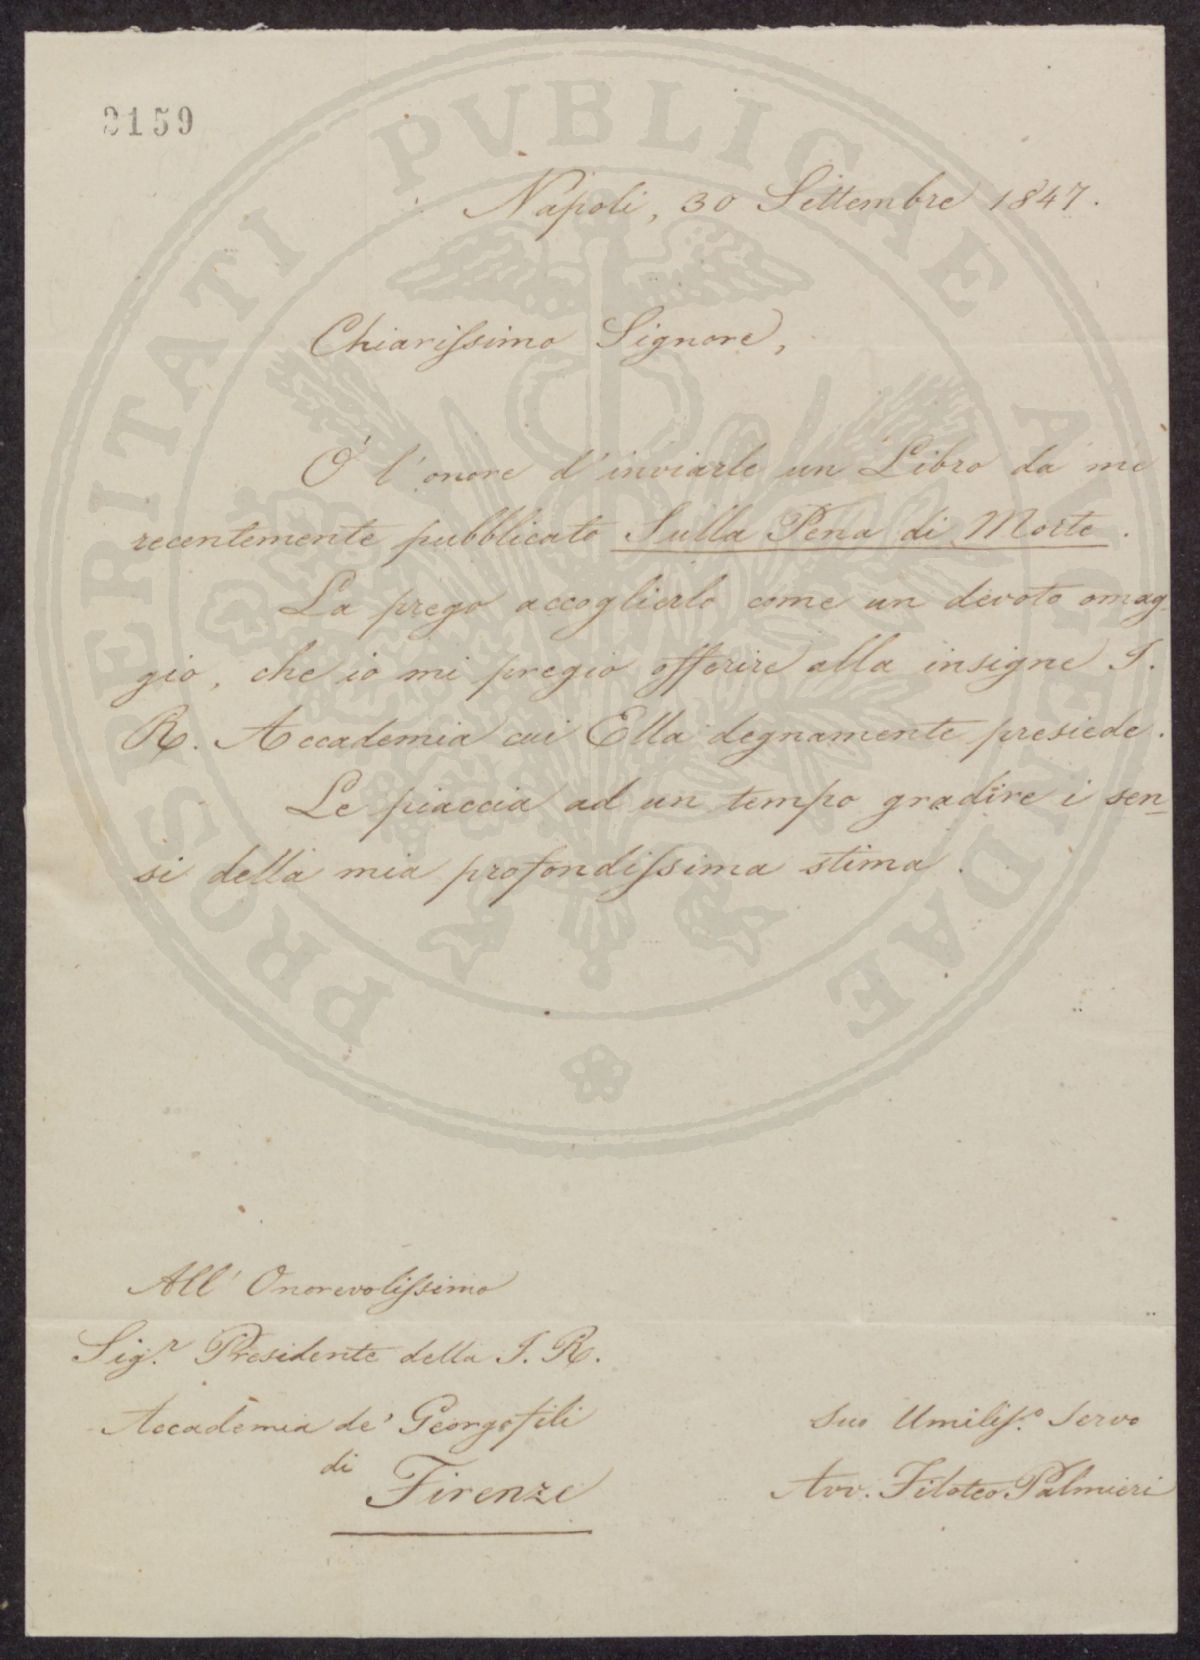 2159
Napoli, 30 Settembre 1847.
Chiarissimo Signore,
Ó l'onore d'inviarle un Libro da me
recentemente pubblicato Sulla Pena di Morte.
La prego accoglierlo come un devoto omag-
gio, che io mi pregio offerire alla insigne I.
R. Accademia cui Ella degnamente presiede.
Le piaccia ad un tempo gradire i sen-
si della mia profondissima stima.
All' Onorevolissimo
Sig.r Presidente della I. R.
Accademia de' Georgofili
di Firenze
Suo Umiliss.o Servo
Avv. Filoteo Palmieri
PROSPERITATI PVBLICAE AVGENDAE